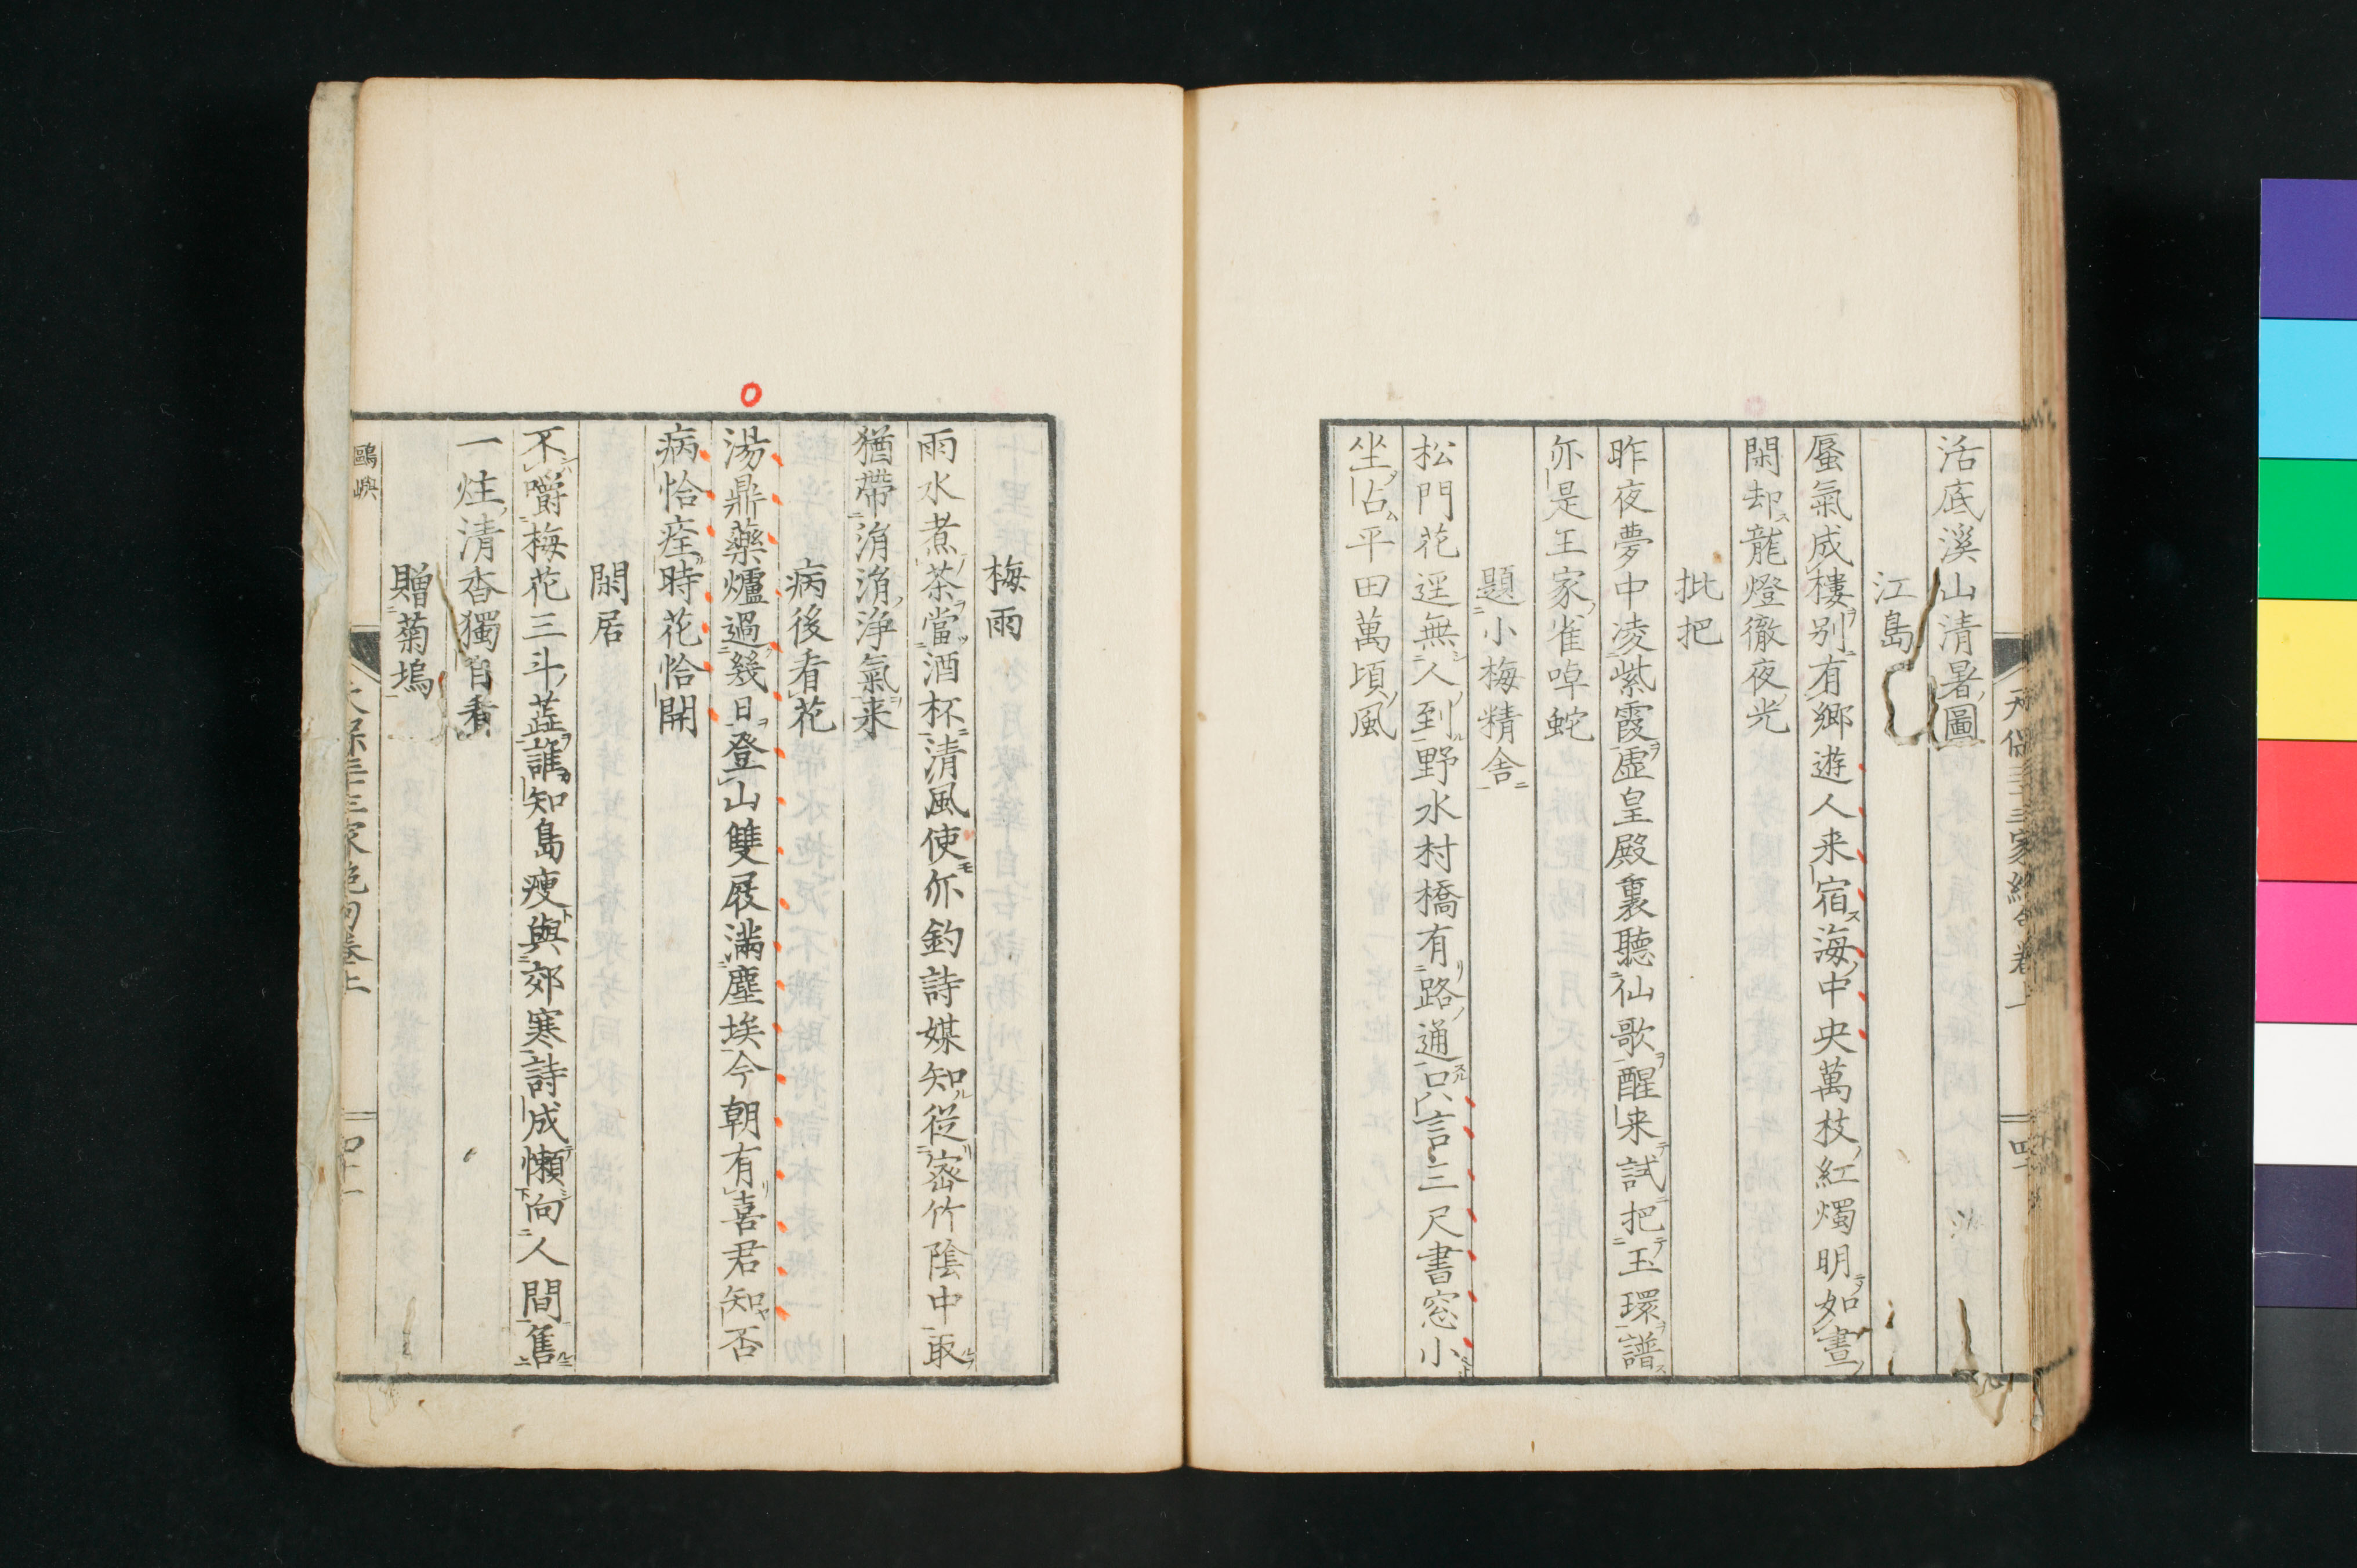 活底溪山清暑圖
江島
蜃氣成樓別有鄉遊人来宿海中央萬枝紅燭明如晝
閑却龍燈徹夜光
批把
昨夜夢中凌紫霞虛皇殿裏聽仙歌醒来試把玉環譜
亦是王家雀啅蛇
題小梅精舍
松門花逕無人到野水村橋有路通只言三尺書窓小
坐占平田萬頃風
梅雨
雨水煮茶當酒杯清風使亦釣詩媒知從密竹陰中取
猶帶涓涓淨氣来
病後看花
湯鼎藥爐過幾日登山雙屐滿塵埃今朝有喜君知否
病恰痊時花恰開
閑居
不嚼梅花三斗虀誰知島瘦與郊寒詩成懶向人間售
一炷清香獨自看
贈菊塢
鷗嶼